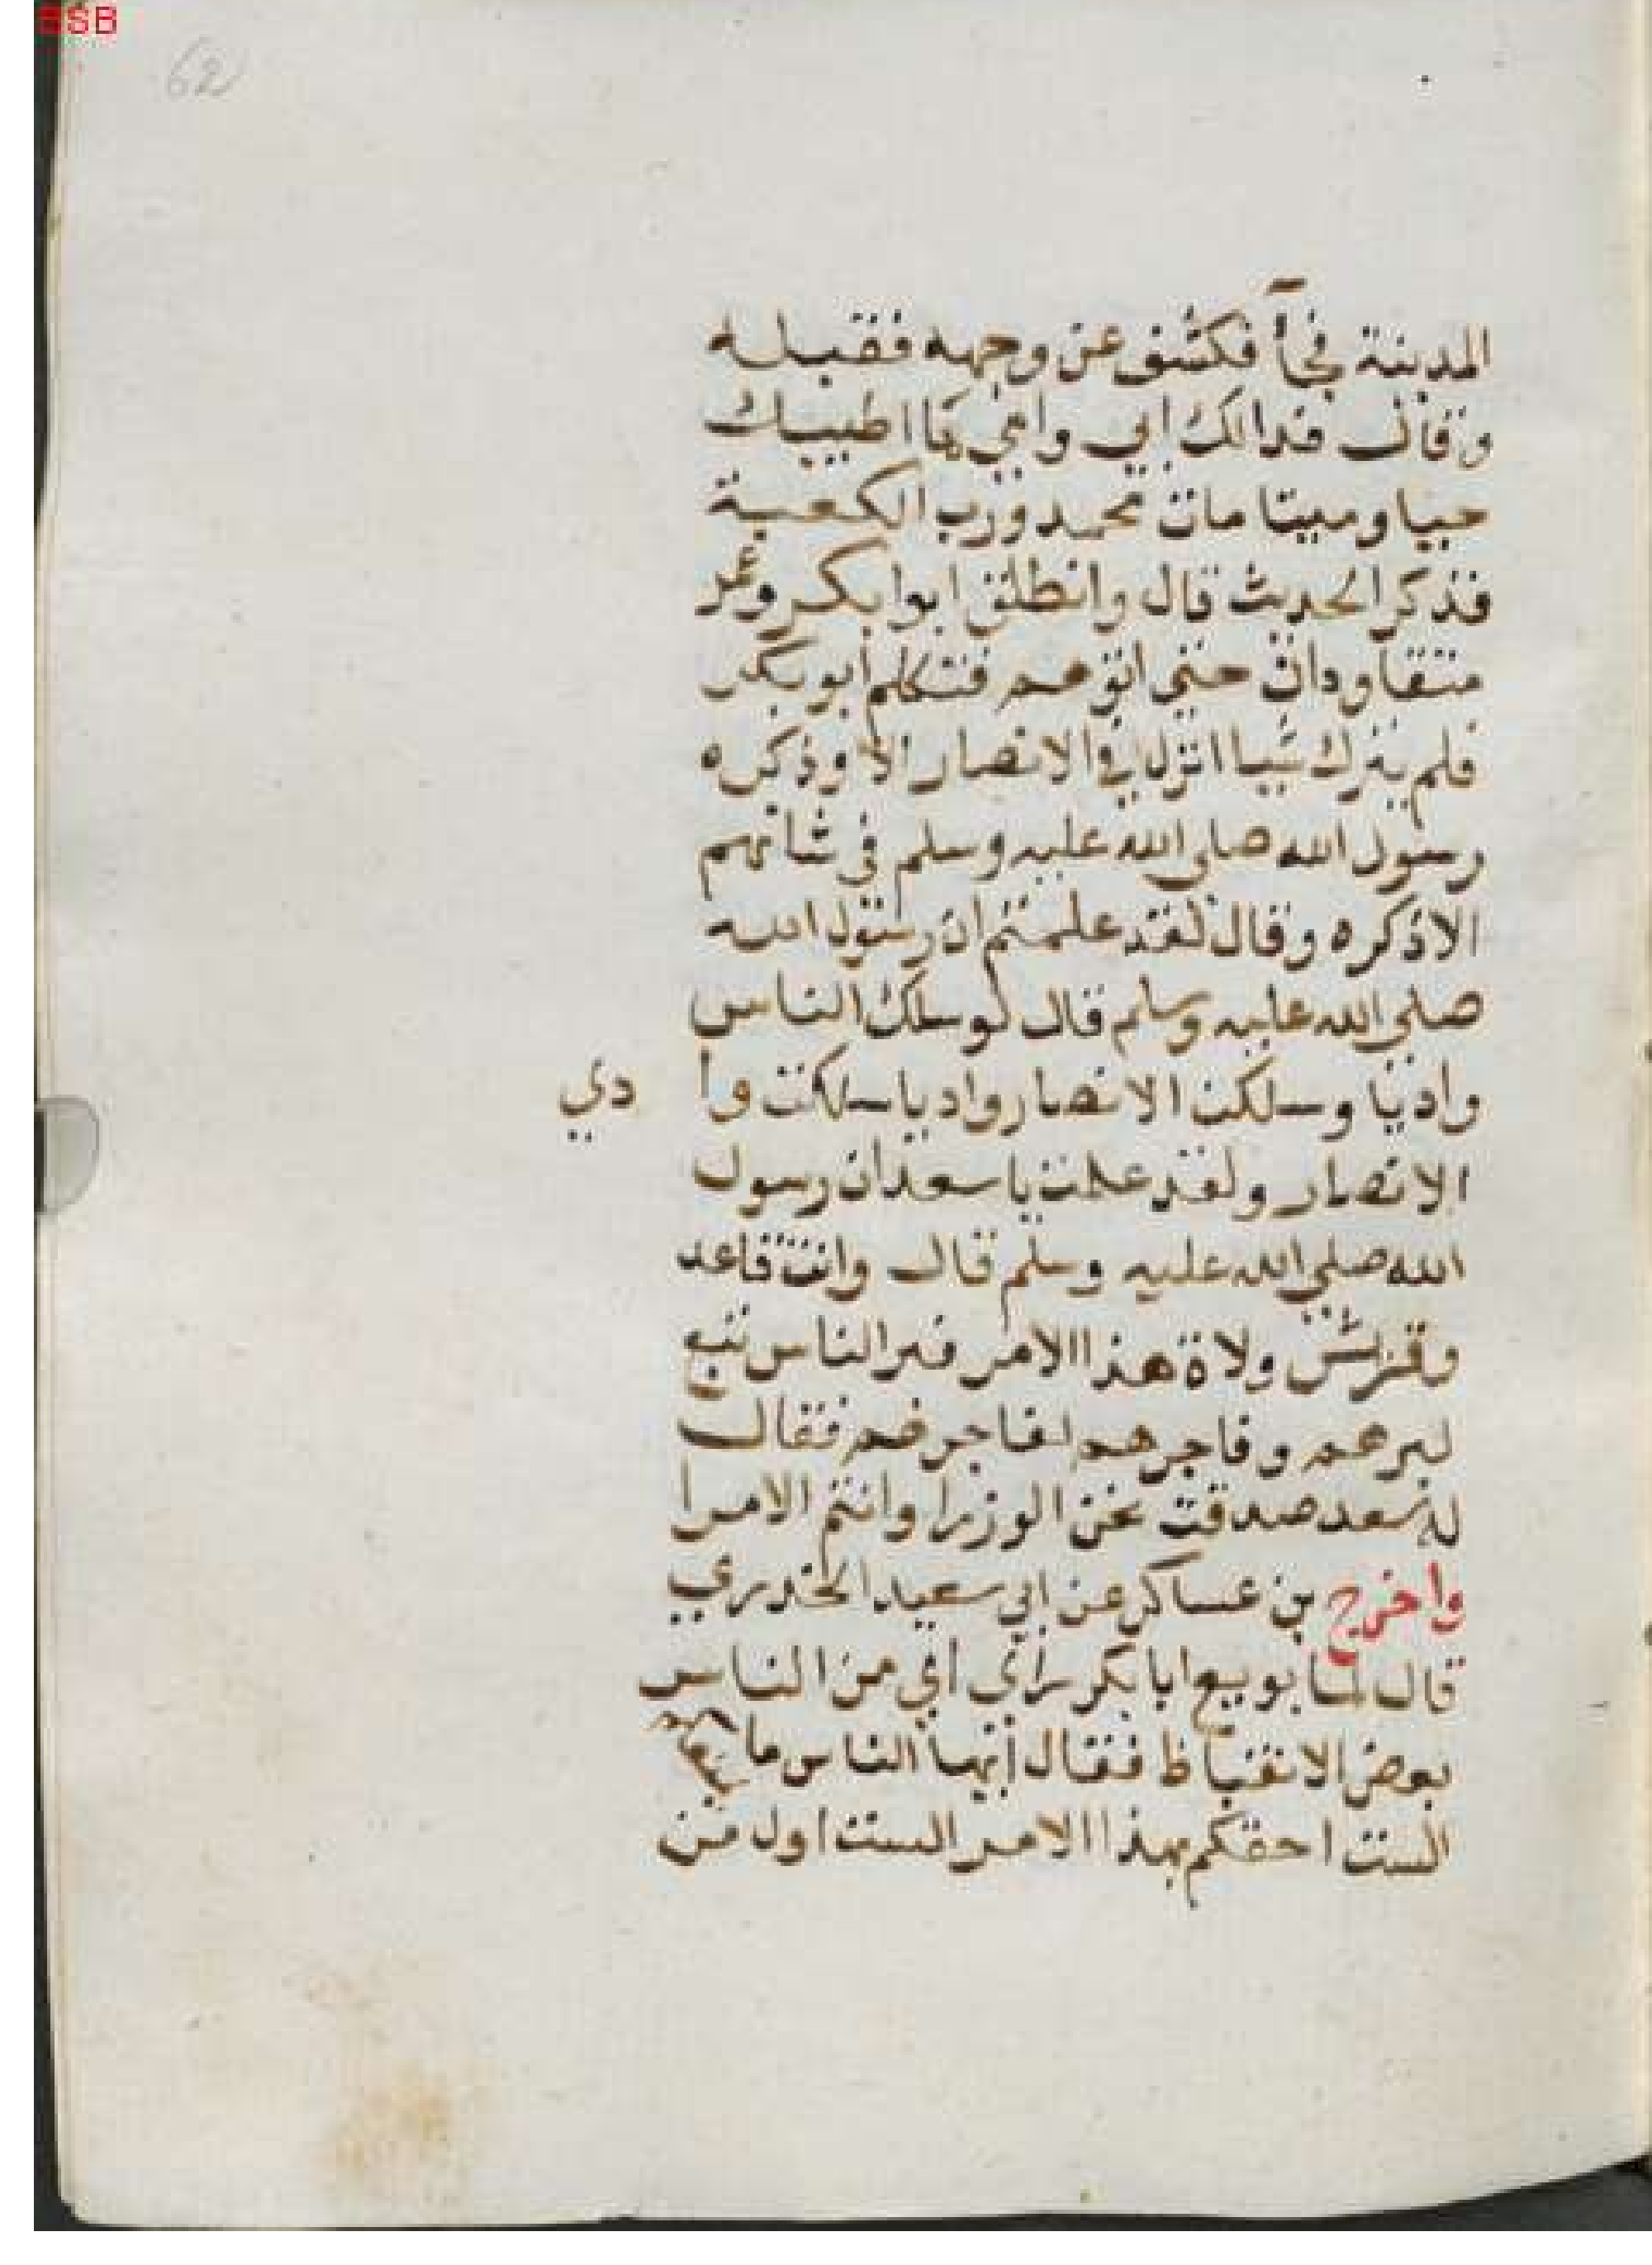 BSB
62
المدينة فجآ فكشف عن وجهه فقبله
وقال فدالك ابي وامي ما اطيبك
حيا وميتا مات محمد ورب الكعبة
فذكر الحديث قال وانطلق ابوا بكر وعمر
متقاودان حتي اتوهم فتكلم ابو بكر
فلم يترك شيا انزل في الانصار الا وذكره
رسول الله صلي الله عليه وسلم في شانهم
الا ذكره وقال لقد علمتم ان رسول الله
صلي الله عليه وسلم قال لو سلك الناس
واديا وسلكت الانصار واديا سلكت وا دي
الانصار ولقد علمت يا سعد ان رسول
الله صلي الله عليه وسلم قال وانت قاعد
وقريش ولاة هذا الامر فبر الناس تبع
لبرهم وفاجرهم لفاجرهم فقال
له سعد صدقت نحن الوزرا وانتم الامرا
واخرج بن عساكر عن ابي سعيد الخدري
قال لما بويع ابا بكر راي اي من الناس
بعض الانقباظ فقال ايها الناس ما
الست احقكم بهذا الامر الست اول من